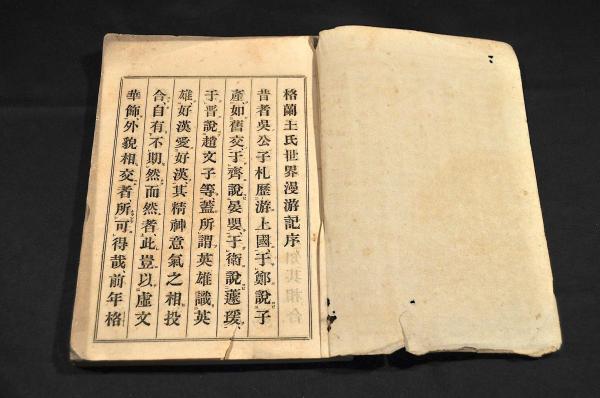 格蘭土氏世界漫游記序
昔者吳公子札歷游上國、于鄭說子
產如舊交、于齊說晏嬰、于衛說蘧瑗、
于晋說趙文子等、蓋所謂英雄識英
雄好漢愛好漢、其精神意氣之相投
合、自有不期然而然者、此豈以虛文
華飾外貌相交者所可得哉、前年格